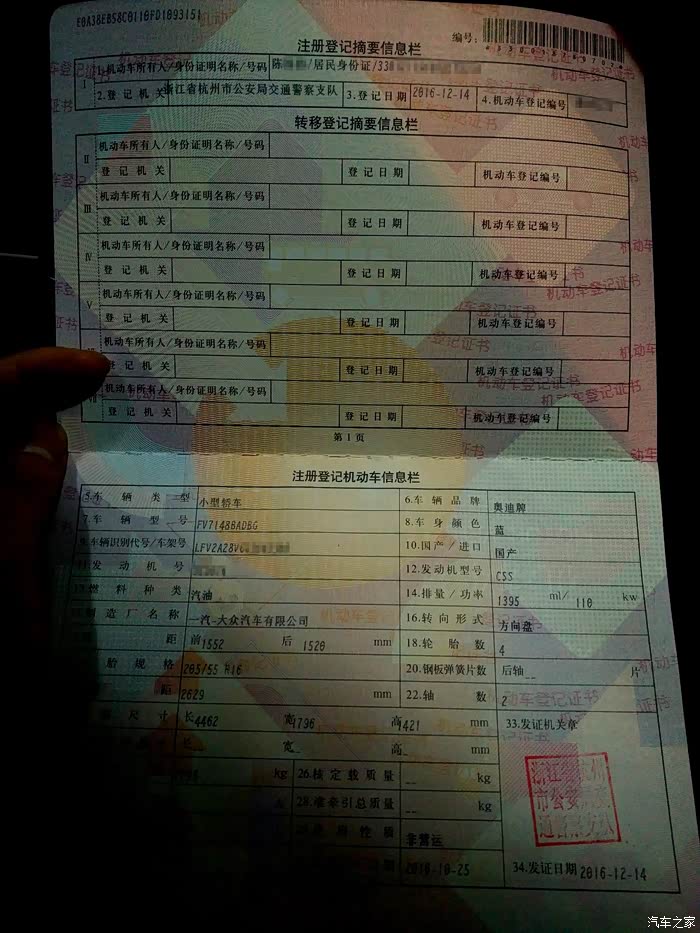 E0A38EB58C0110FD1093151
编号:
注册登记摘要信息栏
I 1.机动车所有人/身份证明名称/号码 陈 /居民身份证/33
2.登记机关 浙江省杭州市公安局交通警察支队 3.登记日期 2016-12-14 4.机动车登记编号
转移登记摘要信息栏
II 机动车所有人/身份证明名称/号码
登记机关 登记日期 机动车登记编号
III 机动车所有人/身份证明名称/号码
登记机关 登记日期 机动车登记编号
IV 机动车所有人/身份证明名称/号码
登记机关 登记日期 机动车登记编号
V 机动车所有人/身份证明名称/号码
登记机关 登记日期 机动车登记编号
机动车所有人/身份证明名称/号码
登记机关 登记日期 机动车登记编号
机动车所有人/身份证明名称/号码
登记机关 登记日期 机动车登记编号
第1页
注册登记机动车信息栏
5.车辆类型 小型轿车 6.车辆品牌 奥迪牌
7.车辆型号 FV7148BADBG 8.车身颜色 蓝
9.车辆识别代号/车架号 LFV2A28V 10.国产/进口 国产
11.发动机号 12.发动机型号 CSS
13.燃料种类 汽油 14.排量/功率 1395 ml/ 110 kw
制造厂名称 一汽-大众汽车有限公司 16.转向形式 方向盘
距 前1552 后 1520 mm 18.轮胎数 4
胎规格 205/55 R16 20.钢板弹簧片数 后轴-- 片
距 2629 mm 22.轴数 2
尺寸 长4462 宽1796 高1421 mm 33.发证机关章
长 宽 高 mm
kg 26.核定载质量 -- kg
28.准牵引总质量 -- kg
非营运
浙江省杭州市公安局交通警察支队
2016-10-25 34.发证日期 2016-12-14
汽车之家